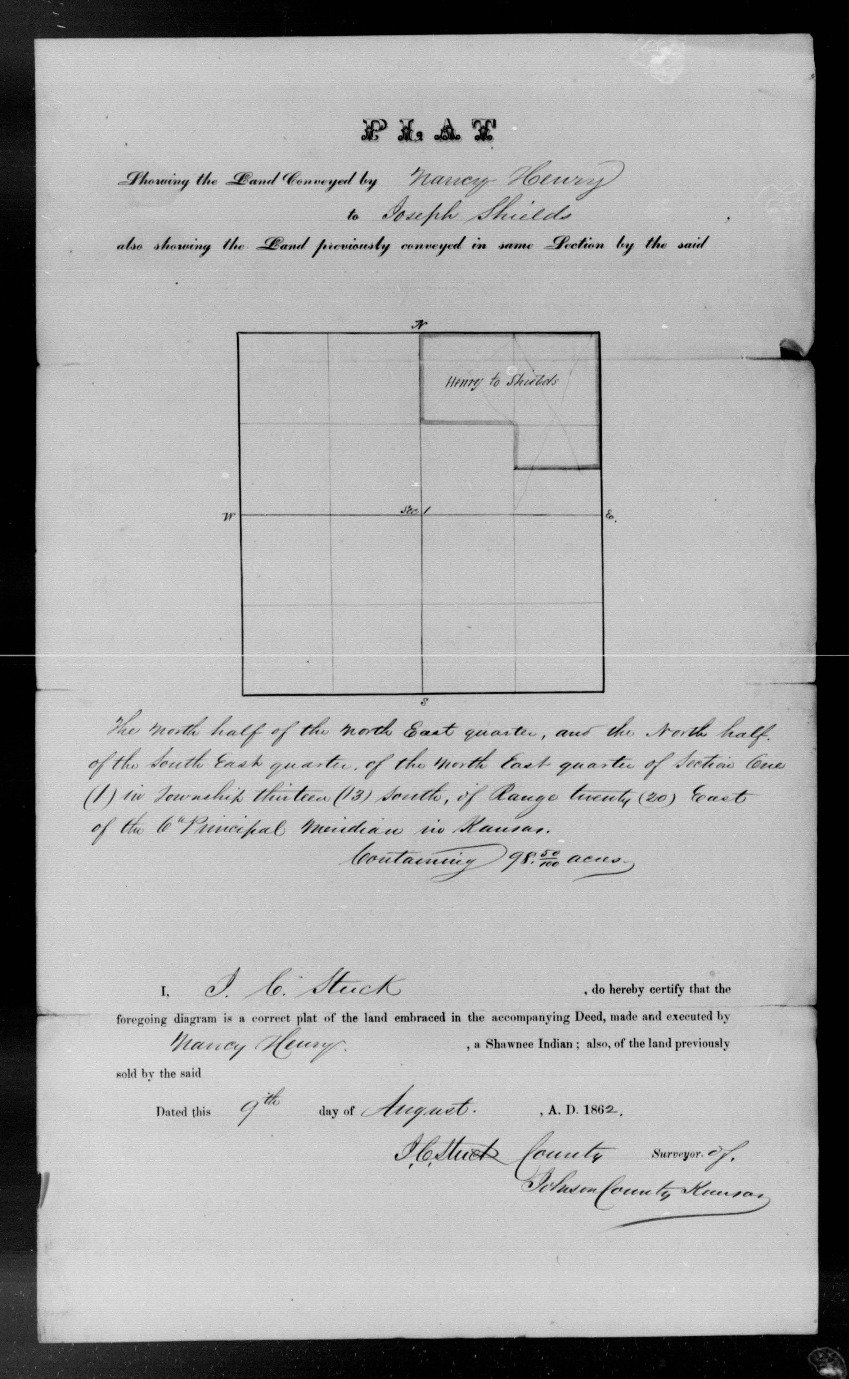 PLAT
Showing the Land Conveyed by Nancy Henry
to Joseph Shields
also showing the Land previously conveyed in same Section by the said
N
Henry to Shields
W
Sec 1
E.
S
The North half of the North East quarter, and the North half
of the South East quarter, of the North East quarter of Section One
(1) in Township thirteen (13) South, of Range twenty (20) East
of the 6th Principal Meridian in Kansas.
Containing 98. 50/100 acres
I, J. C. Stuck , do hereby certify that the
foregoing diagram is a correct plat of the land embraced in the accompanying Deed, made and executed by
Nancy Henry. , a Shawnee Indian ; also, of the land previously
sold by the said
Dated this 9th day of August. , A. D. 1862.
J. C. Stuck County Surveyor of.
Johnson County Kansas